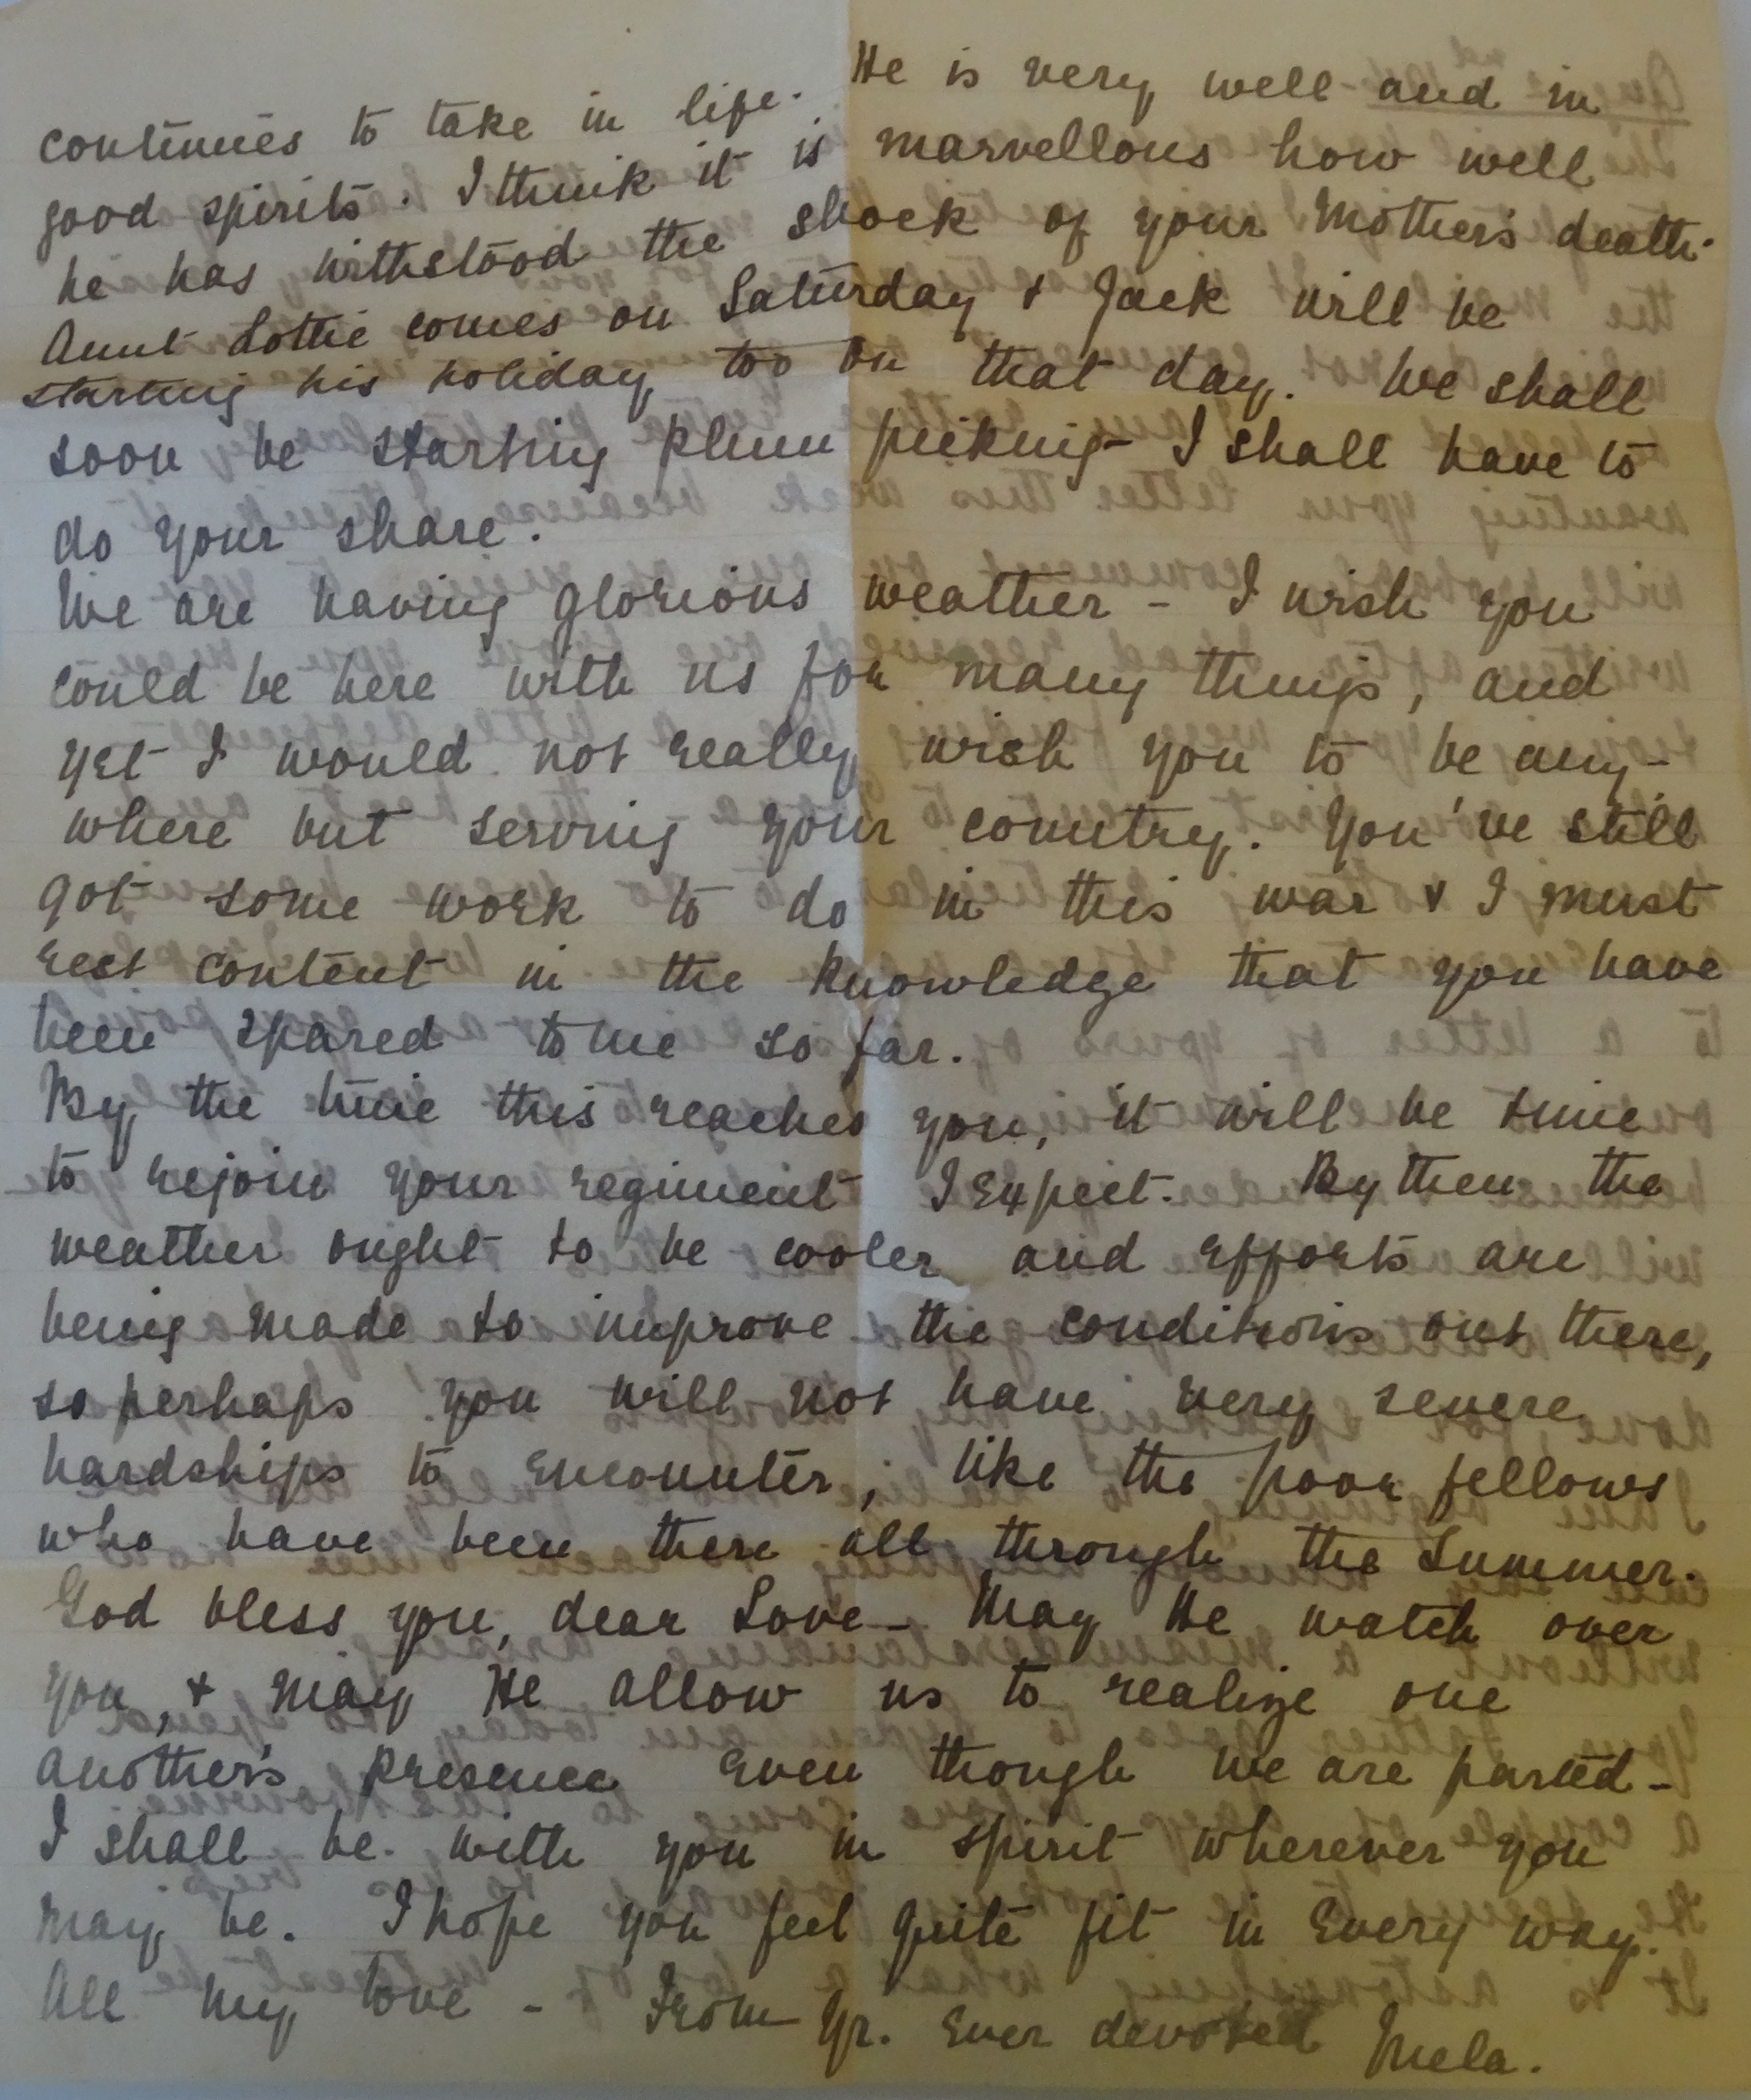 continues to take in life. He is very well and in
good spirits. I think it is marvellous how well
he has withstood the shock of your Mother's death.
Aunt Lottie comes on Saturday & Jack will be
starting his holiday too on that day. We shall
soon be starting plum picking - I shall have to
do your share.
We are having glorious weather - I wish you
could be here with us for many things, and
yet I would not really wish you to be any-
where but serving your country. You've still
got some work to do in this war & I must
rest content in the knowledge that you have
been spared to me so far.
By the time this reaches you, it will be time
to rejoin your regiment I expect. By then the
weather ought to be cooler and efforts are
being made to improve the conditions out there,
so perhaps you will not have very severe
hardships to encounter, like the poor fellows
who have been there all through the Summer.
God bless you, dear Love - May He watch over
you, & may He allow us to realize one
another's presence even though we are parted -
I shall be with you in spirit wherever you
may be. I hope you feel quite fit in every way.
All my love - From Yr. ever devoted Mela.